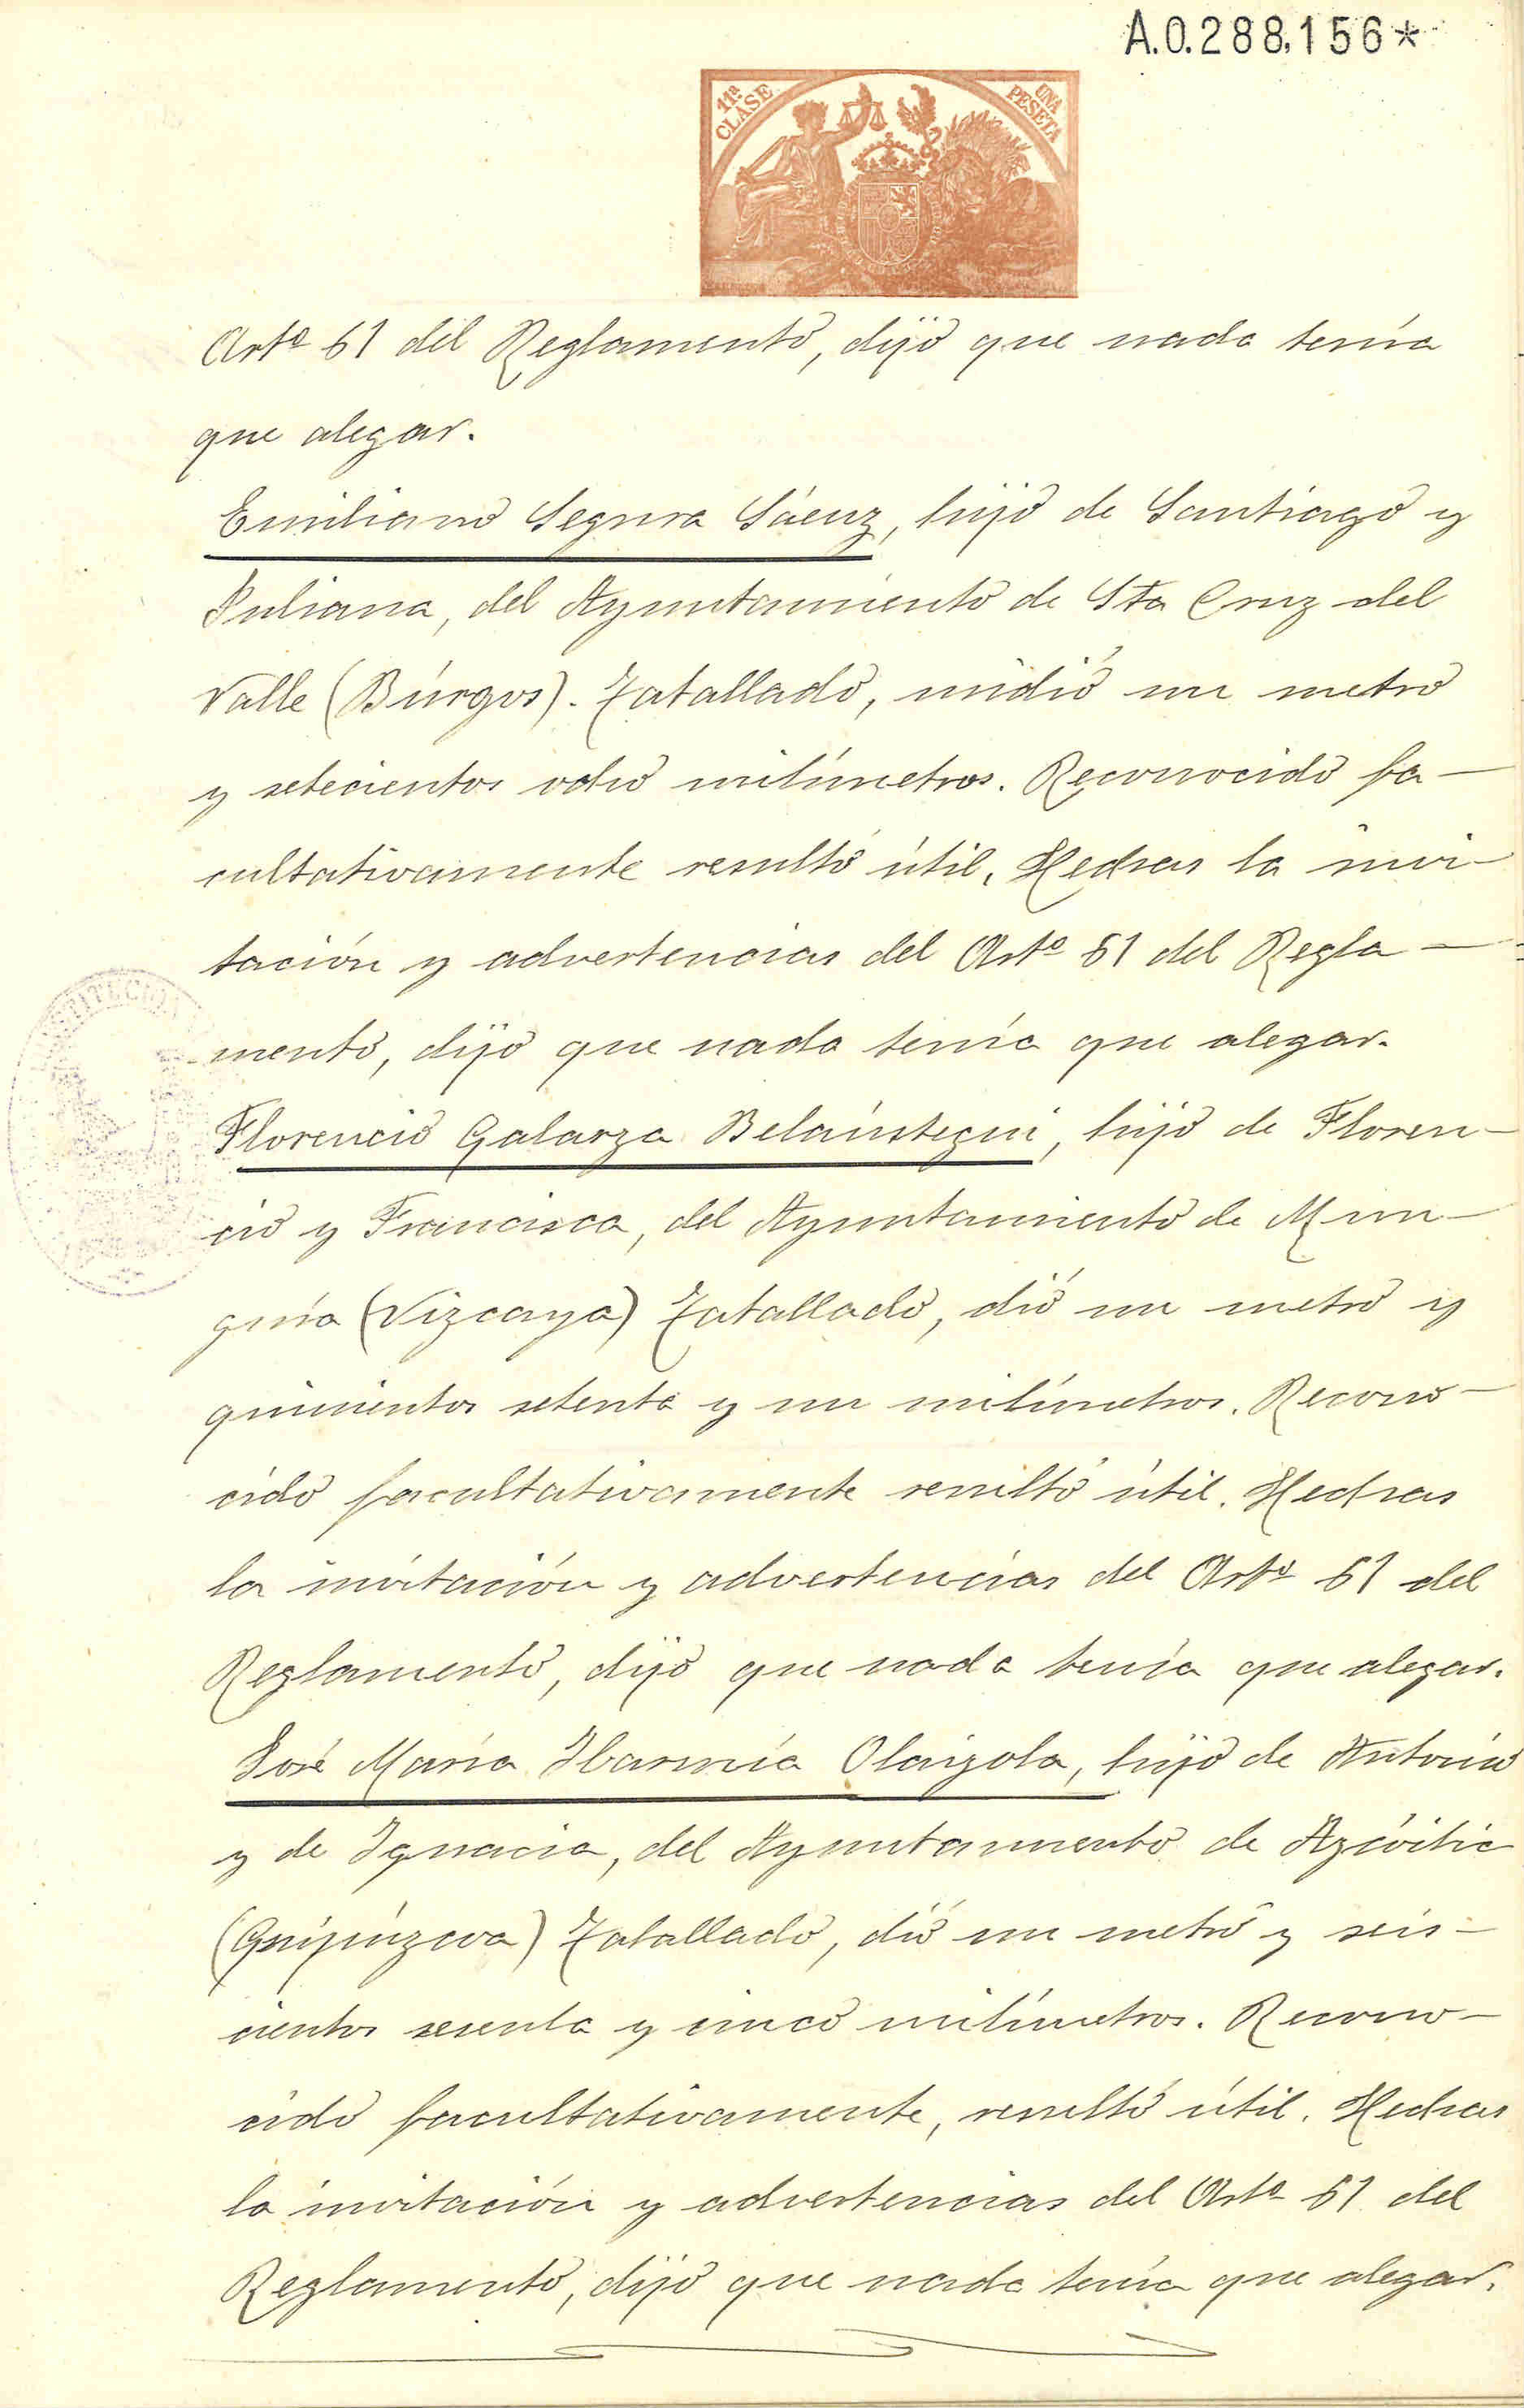 A.0.288,156*
11ª CLASE
UNA PESETA
Artº 61 del Reglamento, dijo que nada tenía
que alegar.
Emiliano Segura Sáenz, hijo de Santiago y
Juliana, del Ayuntamiento de Sta Cruz del
Valle (Búrgos). Zatallado, midió un metro
y setecientos ocho milímetros. Reconocido fa-
cultativamente resultó útil. Hechas la invi-
tación y advertencias del Artº 61 del Regla-
mento, dijo que nada tenía que alegar.
Florencio Galarza Belaústegui, hijo de Floren-
cio y Francisca, del Ayuntamiento de Mun-
guía (Vizcaya) Zatallado, dió un metro y
quinientos setenta y un milímetros. Recono-
cido facultativamente resultó útil. Hechas
la invitación y advertencias del Artº 61 del
Reglamento, dijo que nada tenía que alegar.
José María Ibarmía Olaizola, hijo de Antonio
y de Ignacia, del Ayuntamiento de Azcóitia
(Guipúzcoa) Zatallado, dió un metro y seis-
cientos sesenta y cinco milímetros. Recono-
cido facultativamente, resultó útil. Hechas
la invitación y advertencias del Artº 61 del
Reglamento, dijo que nada tenía que alegar.